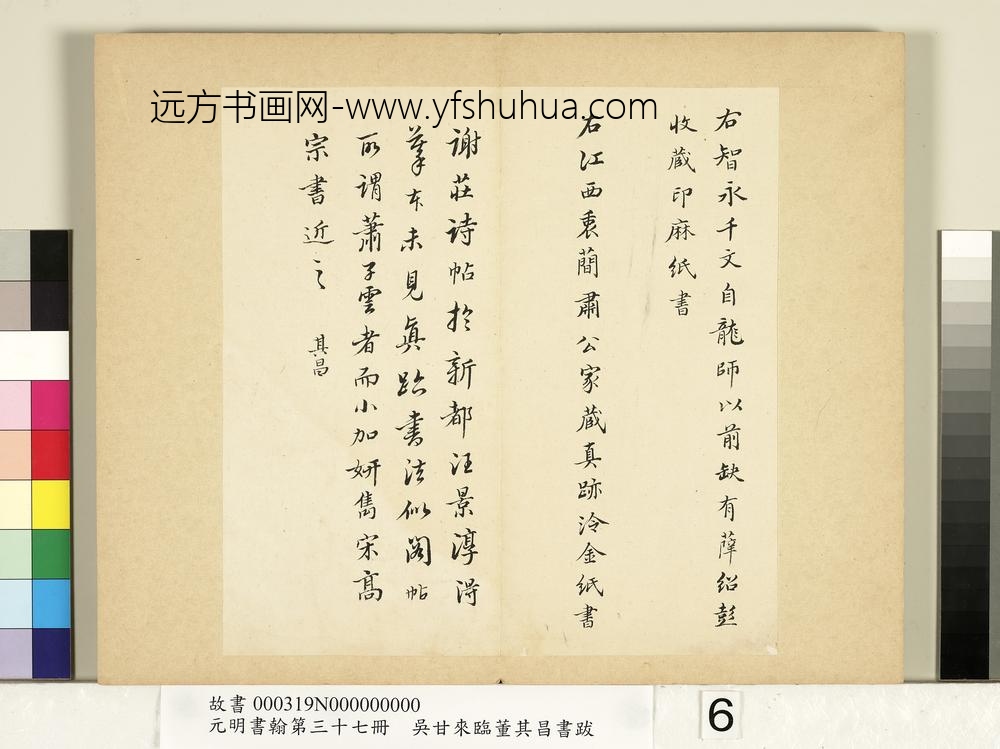 远方书画网-www.yfshuhua.com
右智永千文自龍師以前缺有薛紹彭
收藏印麻紙書
右江西衷簡肅公家藏真跡泠金紙書
謝莊詩帖於新都汪景淳得
摹本未見真跡書法似閣帖
所謂蕭子雲者而小加妍雋宋高
宗書近之 其昌
故書 000319N000000000
元明書翰第三十七冊 吳甘來臨董其昌書跋
6